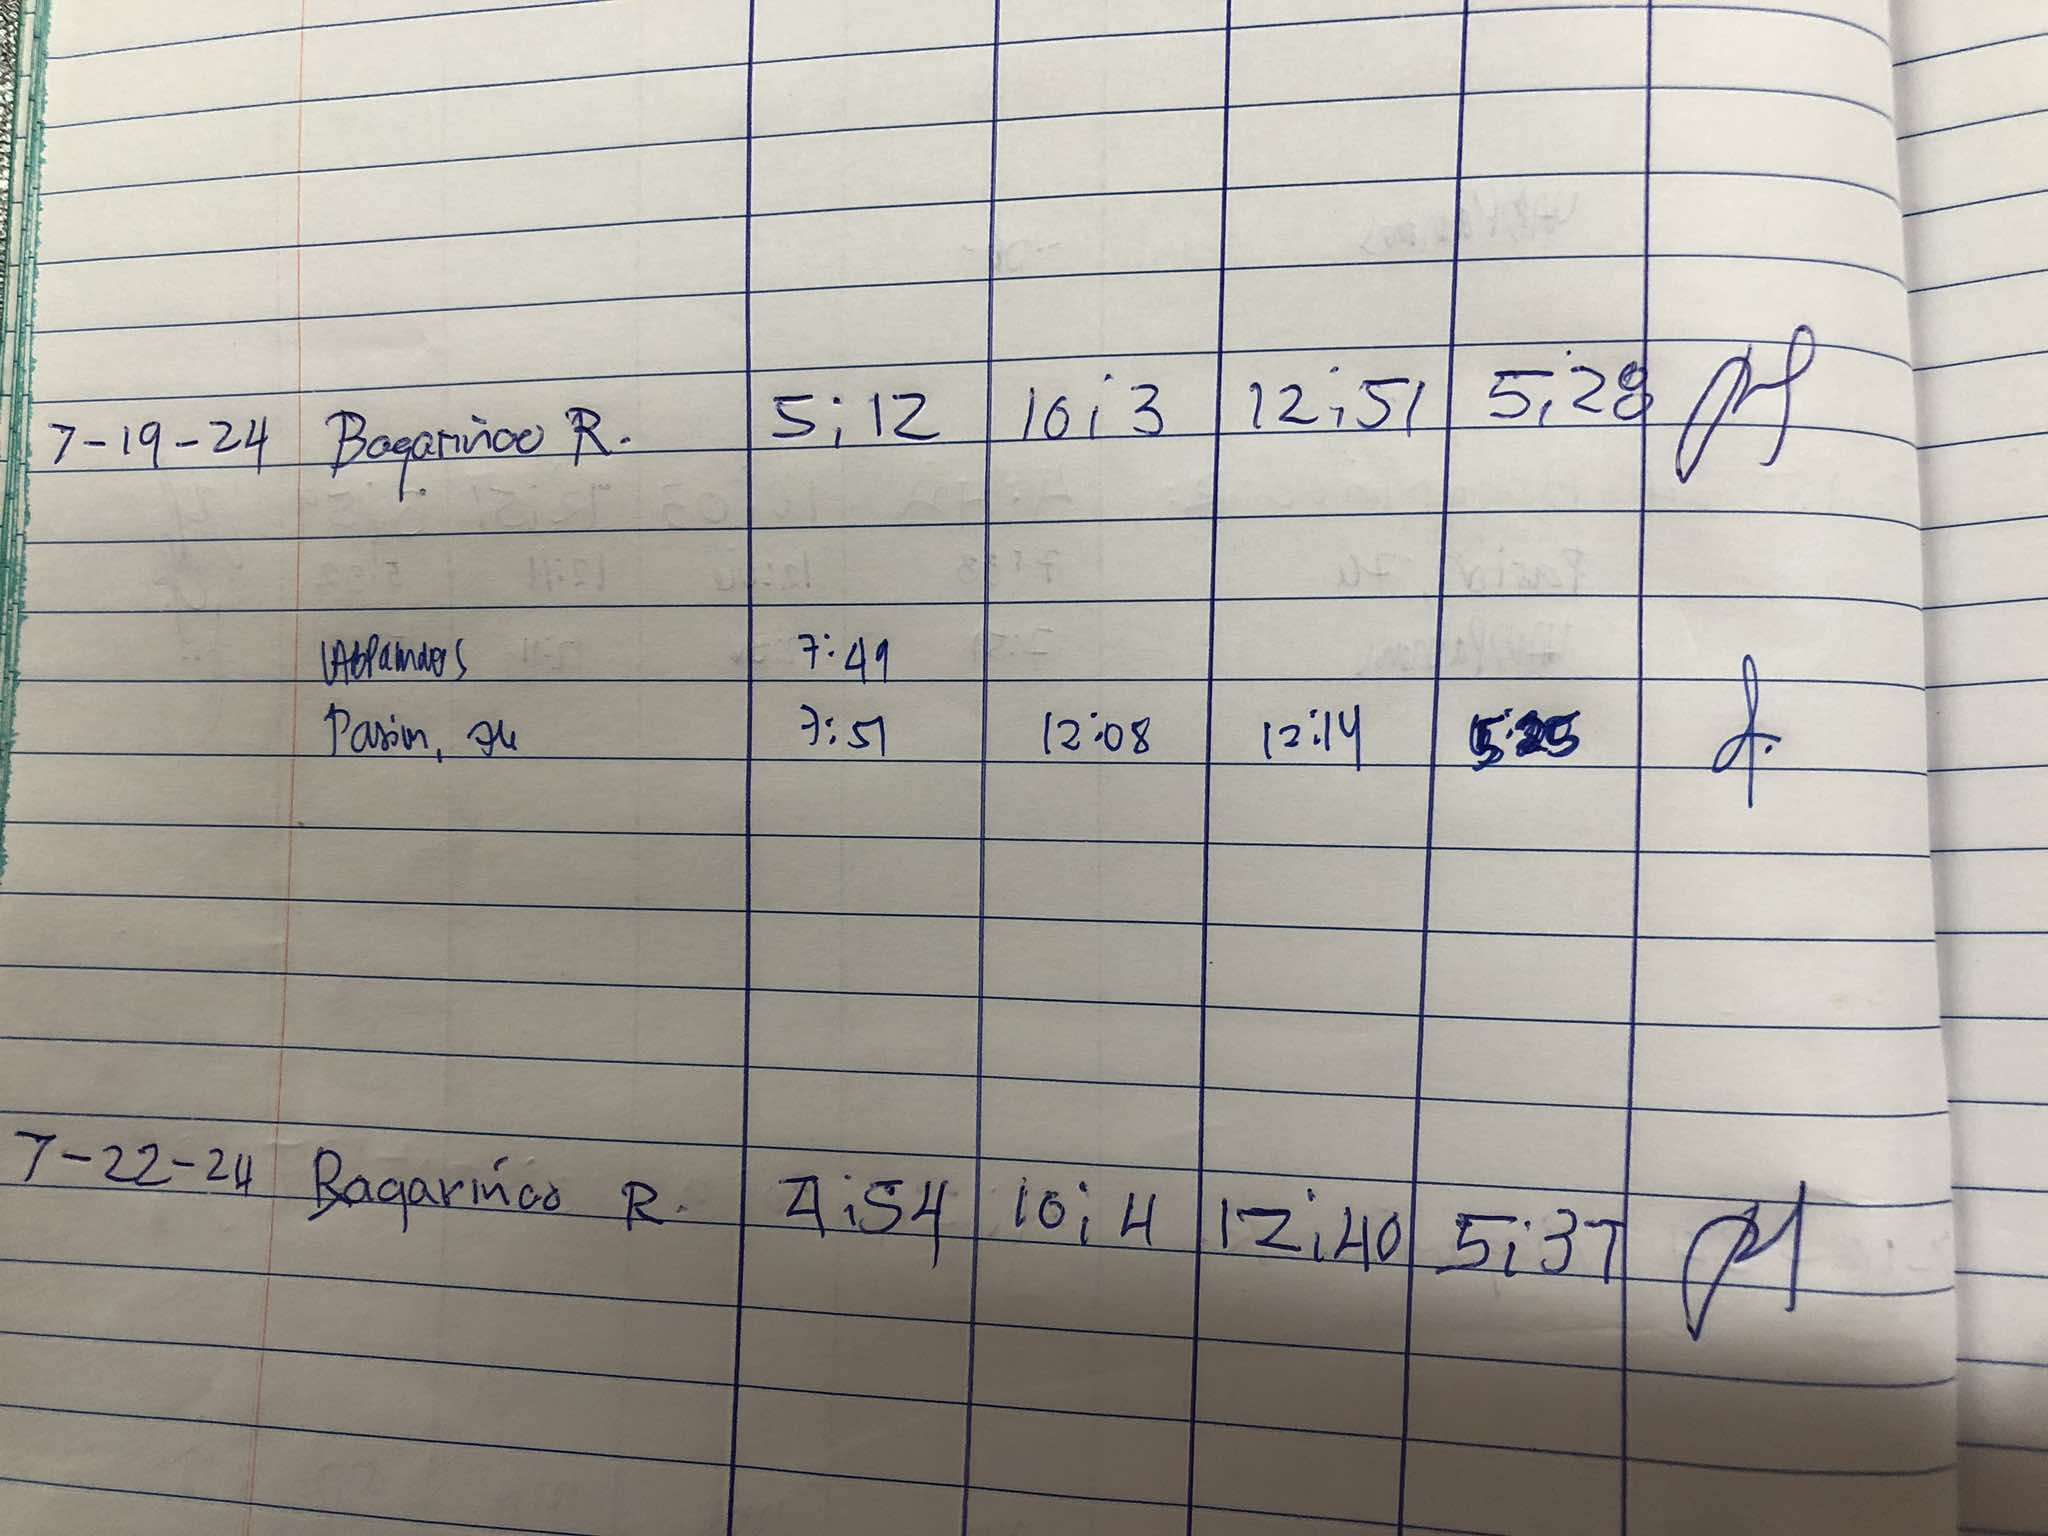 7-19-24 Bagariñao R. 5:12 10:3 12:51 5:28
7:49
Pasin, 7:51 12:08 12:14 5:25
7-22-24 Bagariñao R. 4:54 10:4 12:40 5:37